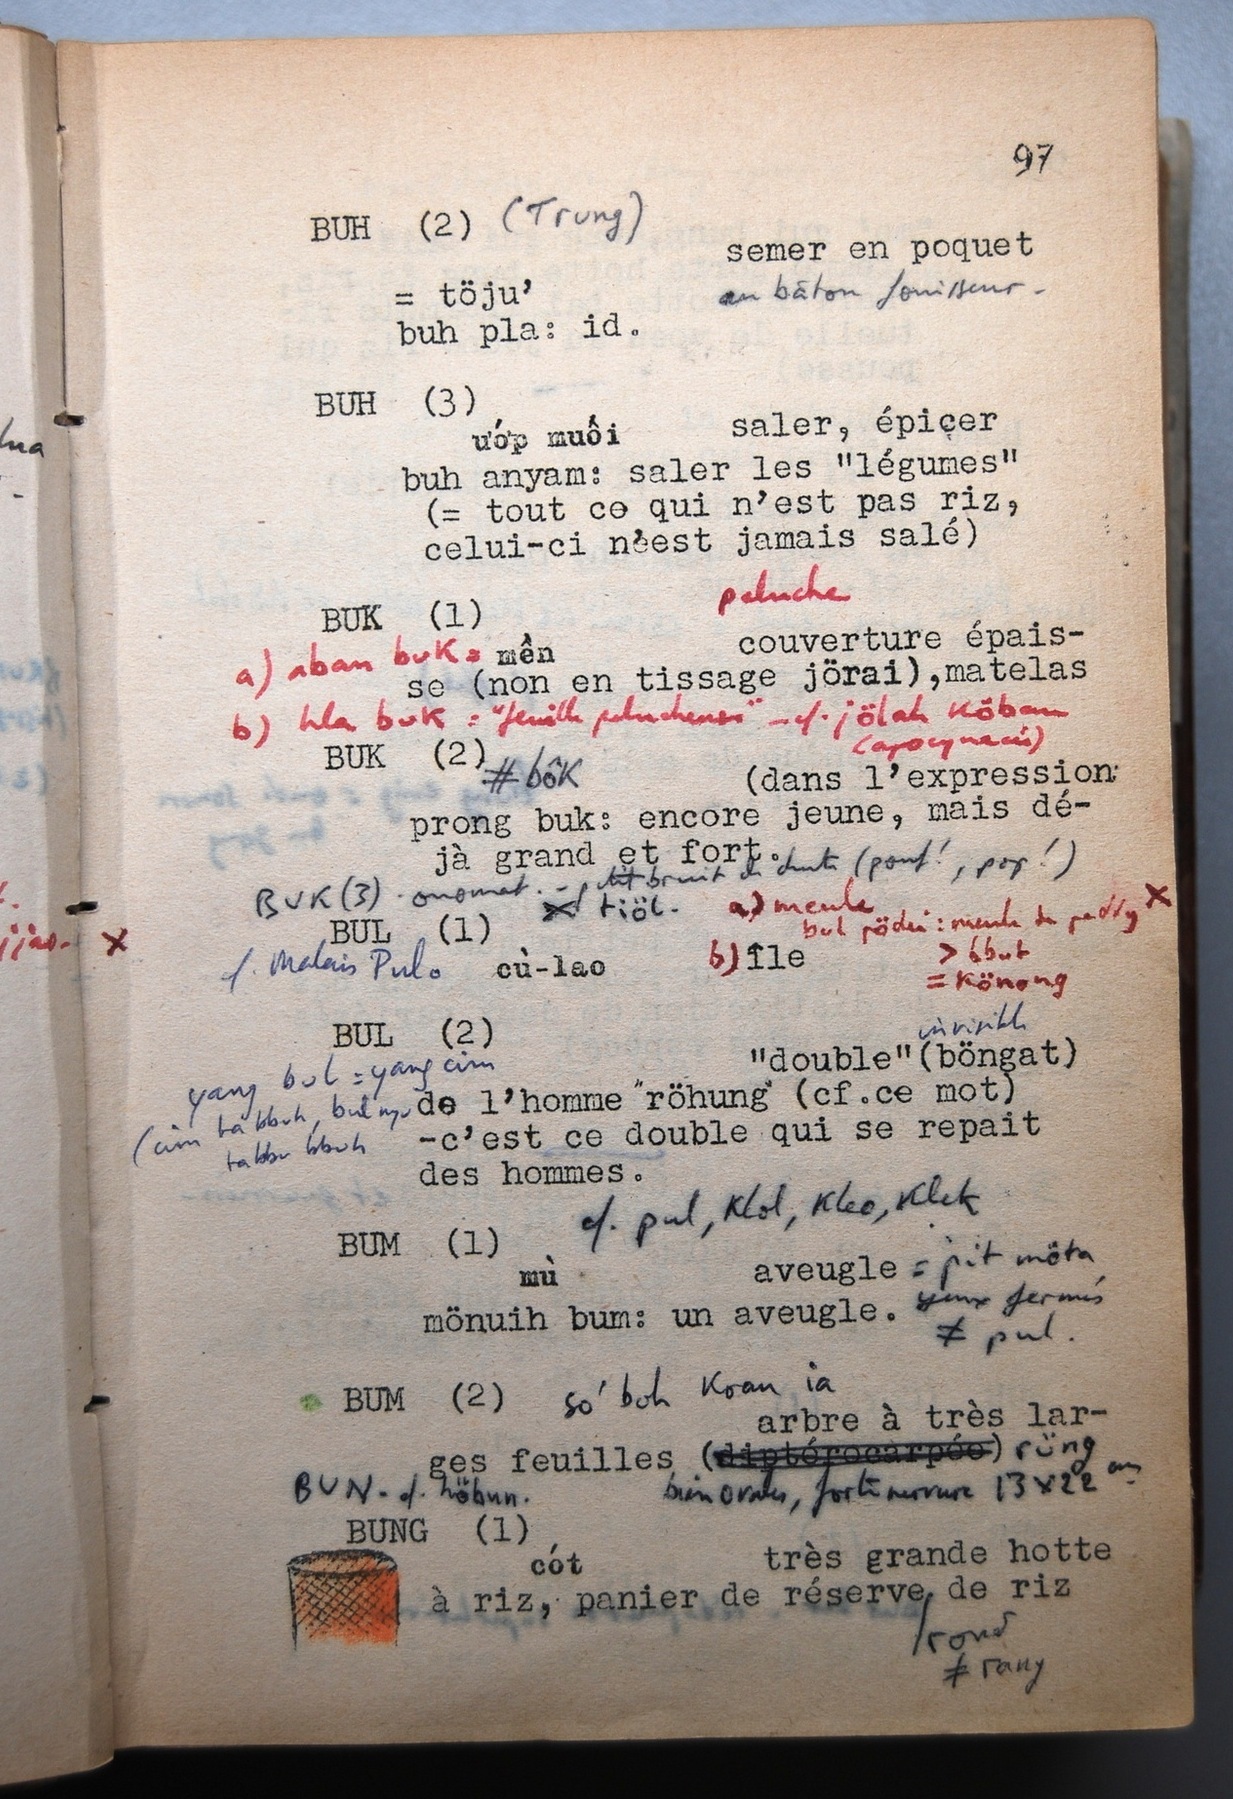 97
BUH (2) (Trung)
semer en poquet
= töju'
au bâton fouisseur.
buh pla: id.
BUH (3)
ướp muối saler, épiçer
buh anyam: saler les "légumes"
(= tout ce qui n'est pas riz,
celui-ci n'est jamais salé)
peluche
BUK (1)
couverture épais-
a) aban buk = mền
se (non en tissage jörai), matelas
b) hla buk = "feuille pelucheuse" - cf. jölah köban
(apocynacée)
BUK (2) # bôk
(dans l'expression
prong buk: encore jeune, mais dé-
jà grand et fort.
BUK (3) onomat. - petit bruit de chute (pouf!, pop!)
tiöl.
a) meule
BUL (1)
bul pödai: meule de paddy
cf. Malais Pulo cù-lao b) île > bbut
= könong
BUL (2)
invisible
"double" (böngat)
yang bul = yang cim
de l'homme "röhung" (cf.ce mot)
-c'est ce double qui se repait
des hommes.
cf. pul, klol, kleo, klek
BUM (1)
mù aveugle = pit möta
yeux fermés
mönuih bum: un aveugle.
≠ pul.
BUM (2) so' boh koan ia
arbre à très lar-
ges feuilles (diptérocarpée) rüng
BUN - cf. höbun. bien ovales, forte nervure 13 x 22 cm
BUNG (1)
cót très grande hotte
à riz, panier de réserve de riz
rond
≠ rang